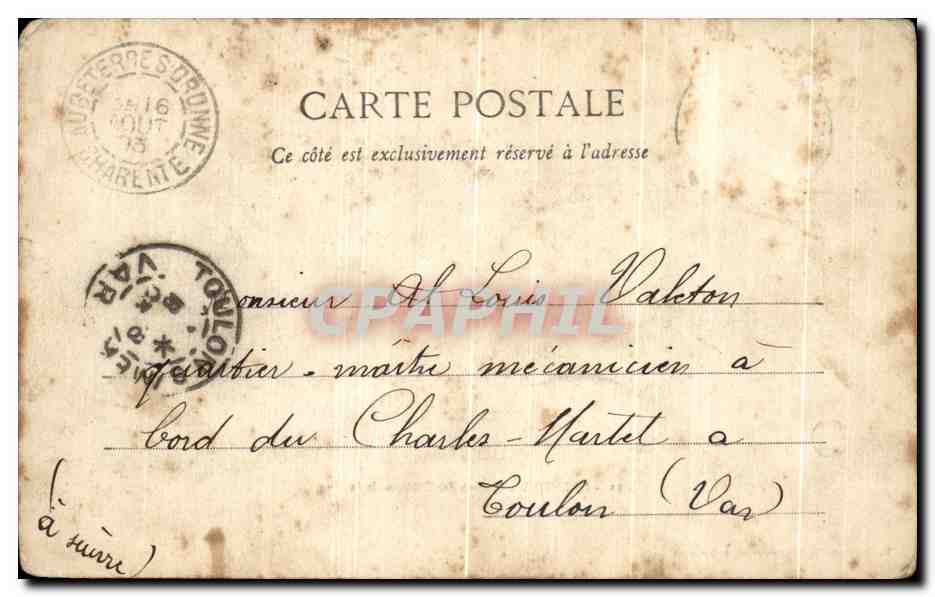 AUBETERRE S. DRONNE
16
AOUT
03
CHARENTE
CARTE POSTALE
Ce côté est exclusivement réservé à l'adresse
TOULON
VAR
Monsieur Al Louis Valeton
quartier-maître mécanicien à
bord du Charles-Martel a
Toulon (Var)
(à suivre)
CPAPHIL